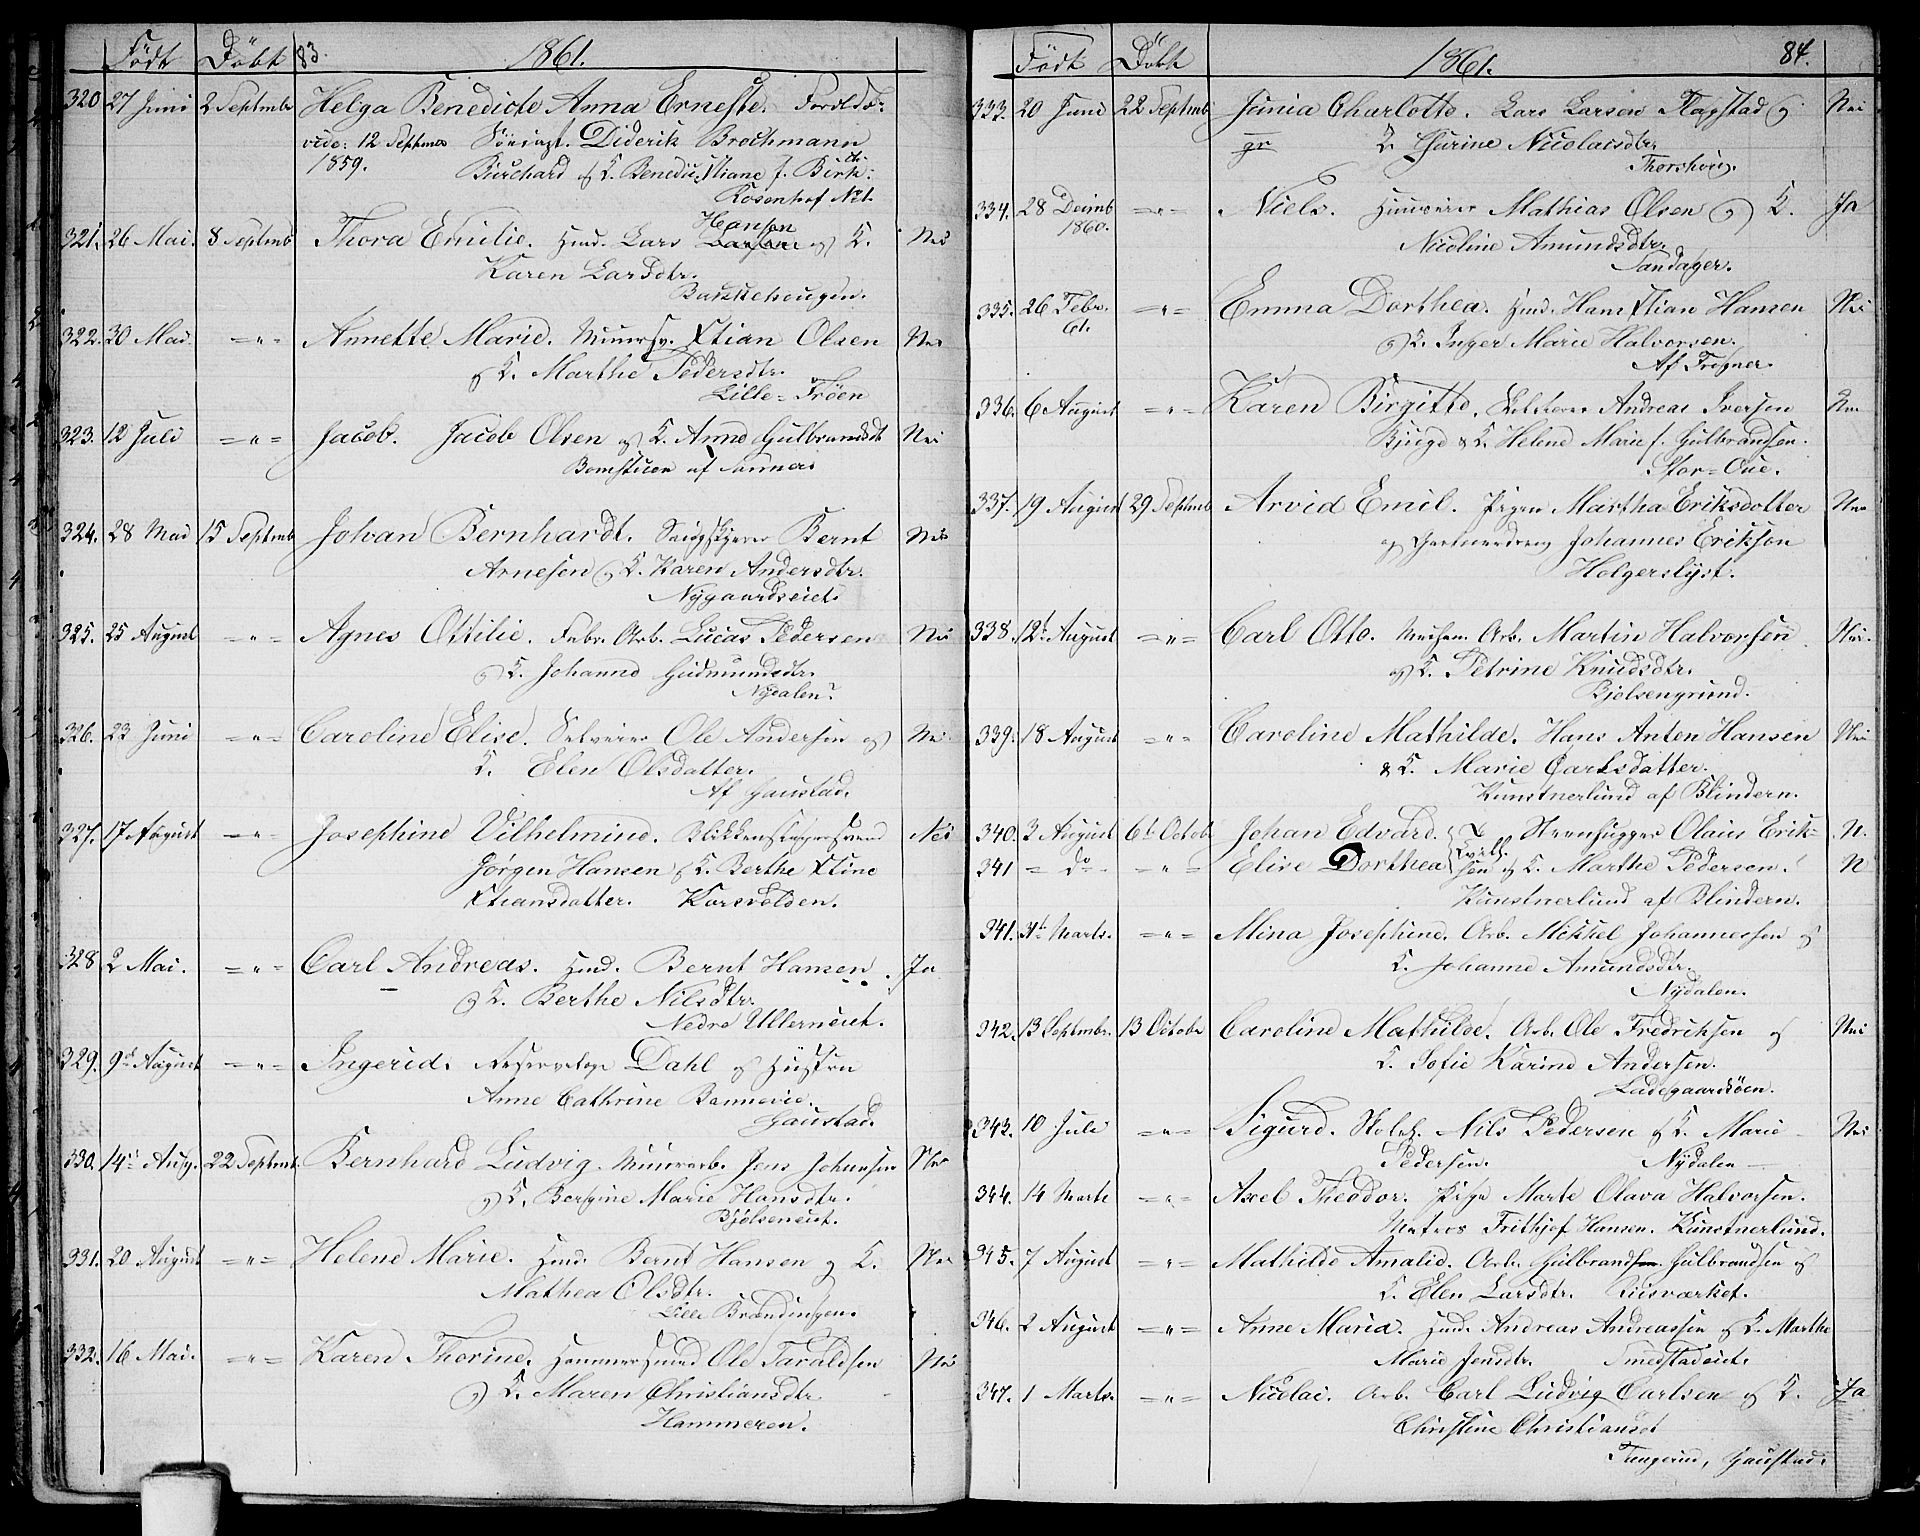 Född Döbt 83. 1861.
320 27 Juni 2 Septmb Helga Benedicte Anna Erneste. Forælds:
vide: 12 Septmb Diderik Brochmann
1859. Burchard og K. Benedic Xtiane f. Birk:
Rosenhof No 1.
321. 26 Mai. 8 Septmb Thora Emilie. Huusm. Lars Hansen og K. Nei
Karen Larsdtr.
Bakkehougen.
322. 30 Mai. =〃= Annette Marie. Muursv. Xtian Olsen Nei
og K. Marthe Pedersdtr.
Lille-Frøen
323. 12 Juli =〃= Jacob. Jacob Olsen og K. Anne Gulbrandsdt Nei
Bomstuen af
324. 28 Mai 15 Septmb Johan Bernhardt. Bernt Nei
Arnesen og K. Karen Andersdtr.
Nygaardseiet.
325. 25 August =〃= Agnes Ottilie. Fabr. Arb. Lucas Pedersen Nei
og K. Johanne Gudmundsdtr.
Nydalen.
326. 23 Juni =〃= Caroline Elise. Selveier Ole Andersen og Nei
K. Elen Olsdatter.
Af Goustad.
327. 17 August =〃= Josephine Vilhelmine. Blikkenslagersvend Nei
Jørgen Hansen og K. Berthe Xtine
Xtiansdatter. Korsvolden.
328 2 Mai. =〃= Carl Andreas. Huusm. Bernt Hansen. Ja
og K. Berthe Nilsdtr.
Nedre Ullerneiet.
329. 9de August =〃= Ingerid. Reservelæge Dahl og Hustru
Anne Cathrine Bennevie.
Goustad.
330. 14de Aug. 22 Septmb. Bernhard Ludvig. Muurarb. Jens Johansen Nei
og K. Marie Hansdtr.
Bjølseneiet.
331. 20 August =〃= Helene Marie. Huusm. Bernt Hansen og K. Nei
Mathea Olsdtr.
Lille
332. 16 Mai. =〃= Karen Thorine. Hammersmed Ole Taraldsen Nei
og K. Maren Christiansdtr.
Hammeren.
Född Döbt 1861. 84.
333. 20 Juni 22 Septmb Junia Charlotte. Lars Larsen Flagstad og Nei
K. Thurine Nicolaisdtr.
Thorshoug.
334. 28 Decmb 1860. =〃= Niels. Huuseier Mathias Olsen og K. Ja
Nicoline Amundsdtr.
Sandager.
335. 26 Febr. 61. =〃= Emma Dorthea. Huusm. Hans Xtian Hansen Nei
og K. Inger Marie Halvorsen.
Af Frogner.
336. 6 August =〃= Karen Birgitte. Selveier Andreas Iversen Nei
Bjuge & K. Helene Marie f. Gulbrandsen.
Stor-Oue.
337. 19 August 29 Septmb Arvid Emil. Pigen Martha Eriksdotter Nei
og Gartnerdreng Johannes Erikson
Holgerslyst.
338. 12te August =〃= Carl Otto. Arb. Martin Halvorsen Nei.
og K. Petrine Knudsdtr.
Bjølsengrund.
339. 18 August =〃= Caroline Mathilde. Hans Anten Hansen Nei
& K. Marie Carlsdatter.
Kunstnerlund af Blindern.
340. 2 August 6te Octob Johan Edvard. Steenhugger Olaus Erik- N.
341 = do - =〃= Elise Dorthea Tvill. sen og K. Marthe Pedersen. N
Kunstnerlund af Blindern.
341. 31te Marts. =〃= Mina Josephine. Arb. Mikkel Johannessen og
K. Johanne Amundsdtr.
Nydalen.
342. 13 Septmbr. 13 Octobr Caroline Mathilde. Arb. Ole Fredriksen og Nei
K. Sofie Karine Andersen.
Ladegaardsøen.
343. 10 Juli =〃= Sigurd. Nils Pedersen og K. Marie Nei
Pedersen. Nydalen —
344. 14 Marts =〃= Axel Theodor. Pige Marte Olava Halvorsen.
Matros Frithjof Hansen. Kunstnerlund.
345. 7 August =〃= Mathilde Amalie. Arb. Gulbrand Gulbrandsen og
K. Elen Larsdtr. Riisværket.
346. 2 August =〃= Anne Maria. Huusm. Andreas Andreassen og K. Marthe
Marie Jensdtr. Smedstadeiet.
347. 1 Marts. =〃= Nicolai. Arb. Carl Ludvig Carlsen og K. Ja
Christine Christiansdt
Goustad.